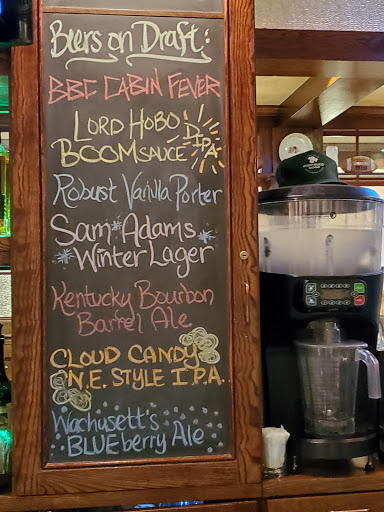 Beers on Draft:
BBC CABIN FEVER
LORD HOBO
BOOMSAUCE DIPA
Robust Vanilla Porter
Sam Adams
Winter Lager
Kentucky Bourbon
Barrel Ale
CLOUD CANDY
N.E. STYLE I.P.A.
Wachusett's
BLUEberry Ale